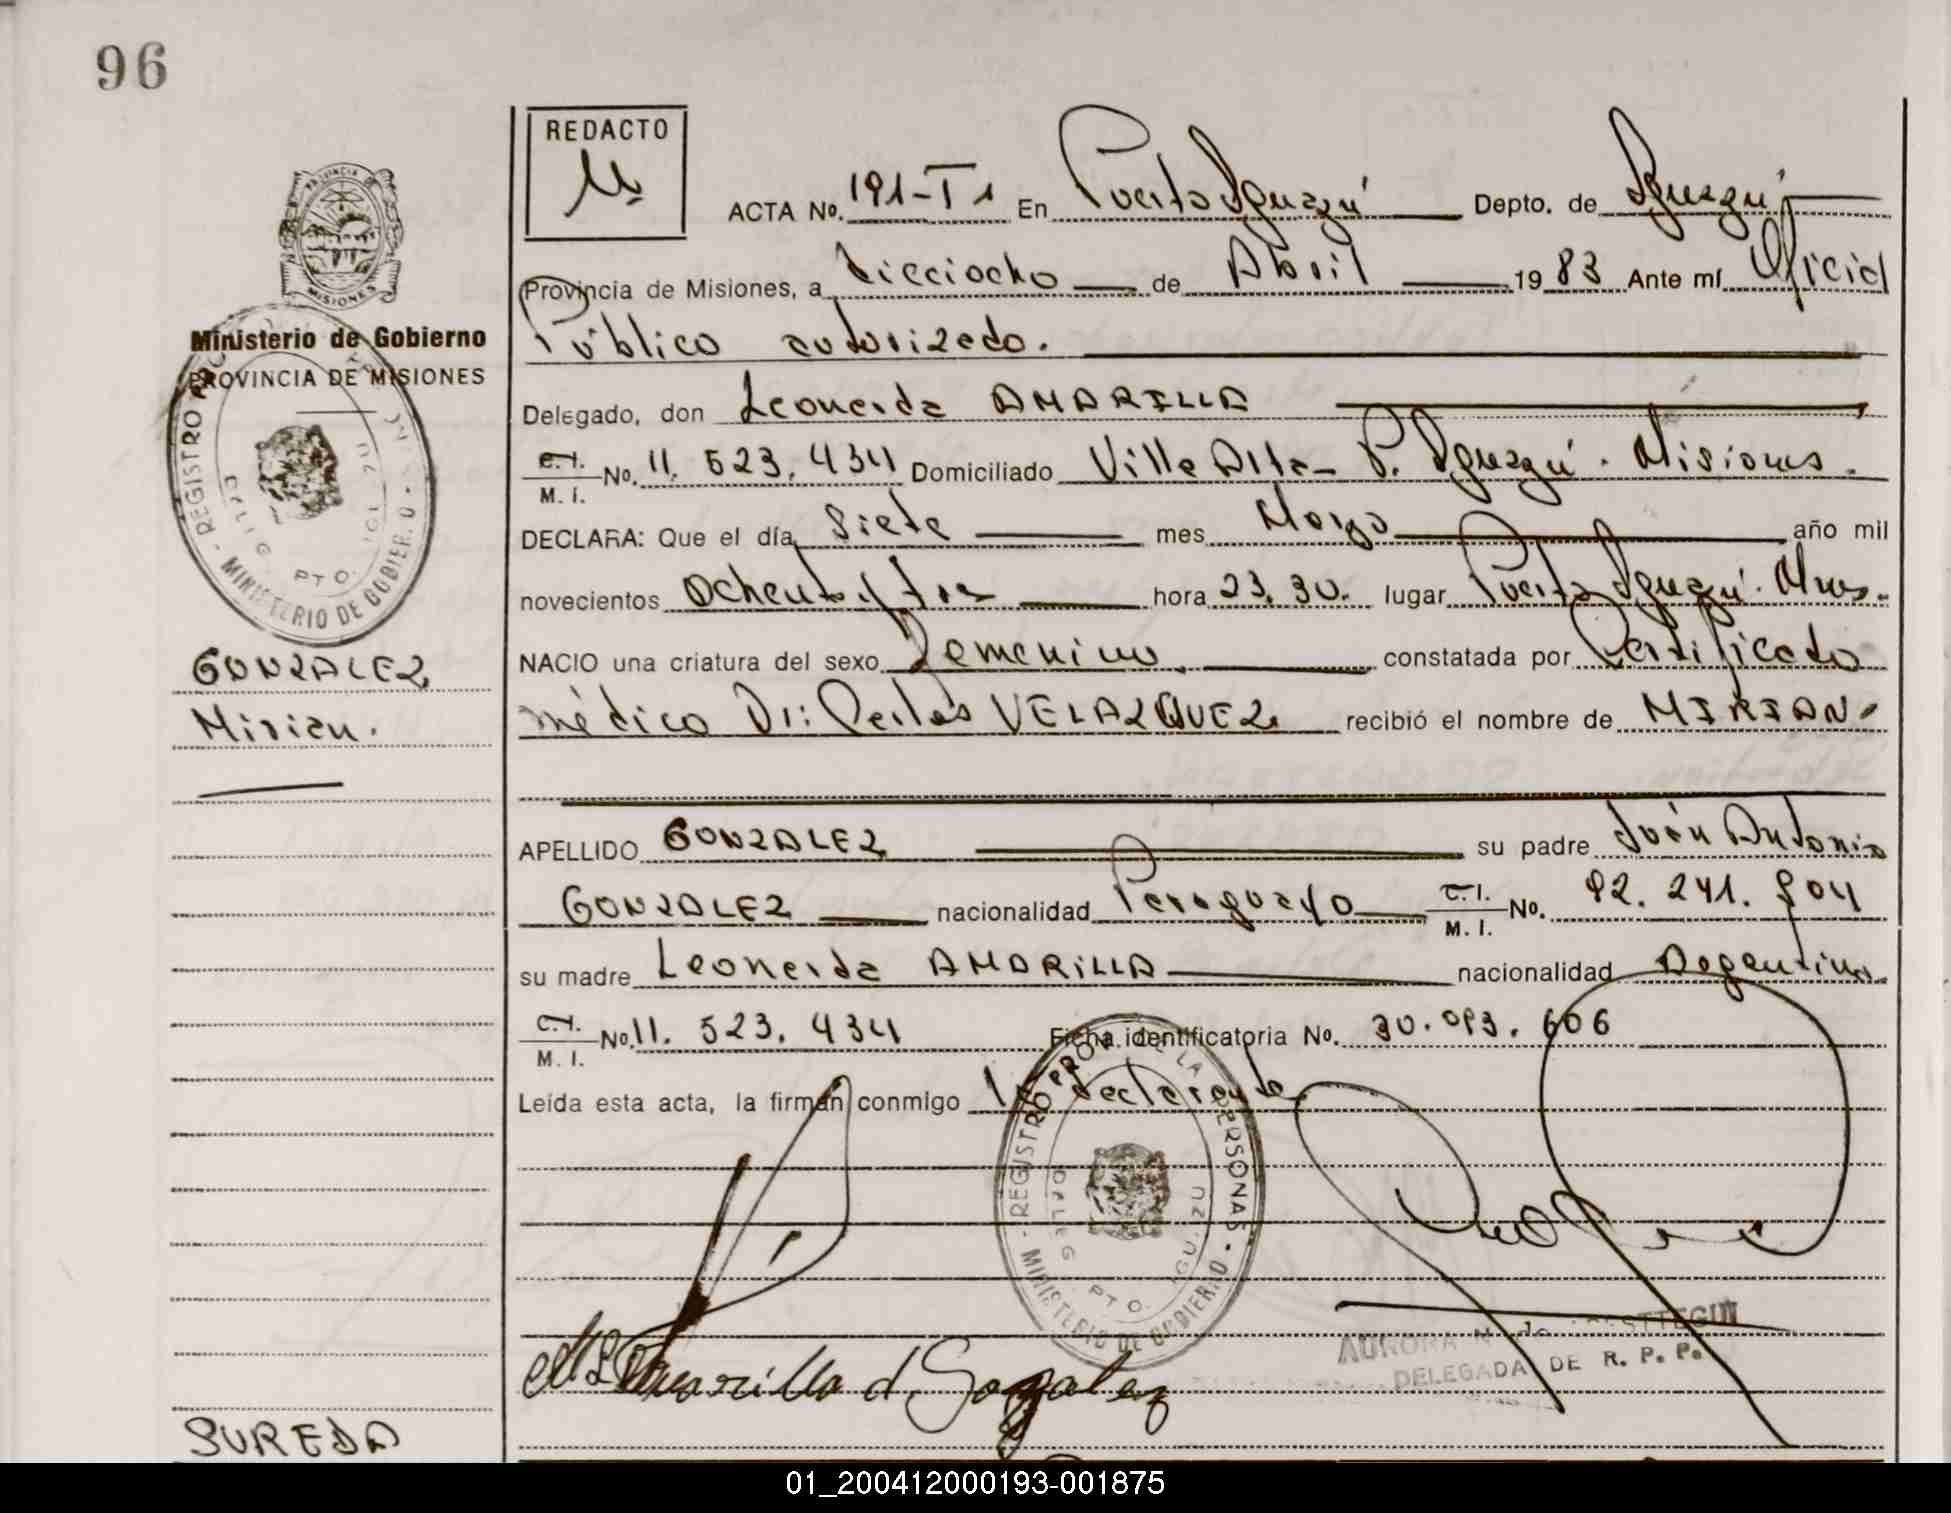 96
REDACTO
PROVINCIA DE
MISIONES
ACTA No. 191-T1 En Puerto Iguazú Depto. de Iguazú
Provincia de Misiones, a Dieciocho de Abril 1983 Ante mí Oficial
Público autorizado.
Ministerio de Gobierno
PROVINCIA DE MISIONES
Delegado, don Leoneida AMARILLA
C.I. M. I. No. 11. 523. 434 Domiciliado Villa Alta - P. Iguazú. Misiones.
REGISTRO
PTO. IGUAZU
MINISTERIO DE GOBIERNO
DECLARA: Que el día Siete mes Marzo año mil
novecientos Ochenta y tres hora 23.30. lugar Puerto Iguazú. Mnes.
NACIO una criatura del sexo Femenino constatada por Certificado
médico Dr: Carlos VELAZQUEZ recibió el nombre de MIRIAN.
GONZALEZ
Mirian.
APELLIDO GONZALEZ su padre Juán Antonio
GONZALEZ nacionalidad Paraguayo C.I. M. I. No. 92. 241. 904
su madre Leoneida AMARILLA nacionalidad Argentina
C.I. M. I. No. 11. 523. 434 Ficha identificatoria No. 30.093.606
Leída esta acta, la firman conmigo la declarante
REGISTRO PROV. DE LAS PERSONAS
DELEG. PTO. IGUAZU
MINISTERIO DE GOBIERNO
AURORA N. de
DELEGADA DE R. P. P.
Amarilla d Gonzalez
SUREDA
01_200412000193-001875